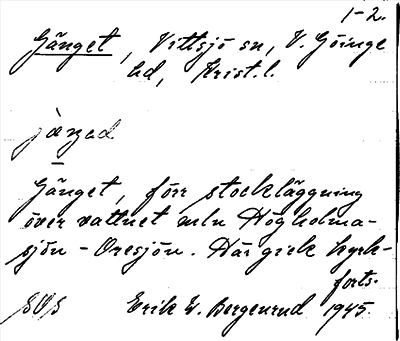 1-2.
Gänget, Vittsjö sn, V. Göinge
hd, Krist. l.
jäŋad
Gänget, förr stockläggning
över vattnet mln Högholma-
sjön - Oresjön. Här gick kyrk-
forts.
SOS Erik W. Bergenrud 1945.